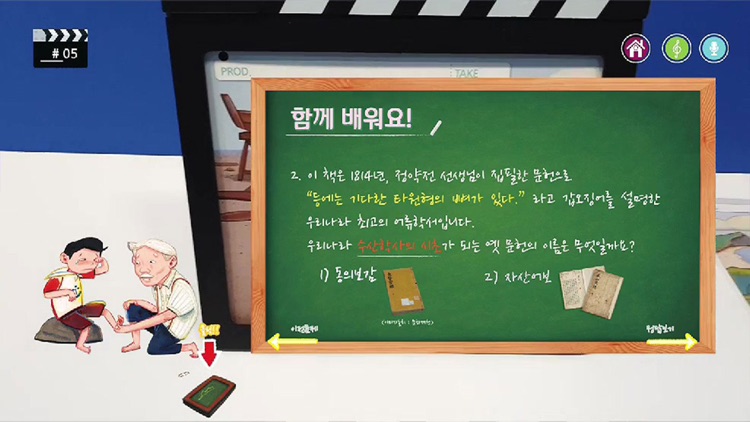 # 05
PROD.
TAKE
함께 배워요!
2. 이 책은 1814년, 정약전 선생님이 집필한 문헌으로
"등에는 기다란 타원형의 뼈가 있다." 라고 갑오징어를 설명한
우리나라 최고의 어류학서입니다.
우리나라 수산학사의 시초가 되는 옛 문헌의 이름은 무엇일까요?
1) 동의보감
2) 자산어보
이전문제
정답보기